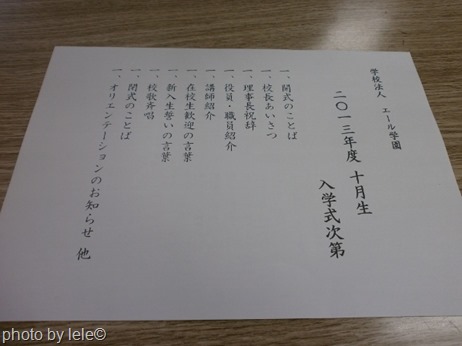 学校法人 エール学園
二〇一三年度 十月生
入学式次第
一、開式のことば
一、校長あいさつ
一、理事長祝辞
一、役員・職員紹介
一、講師紹介
一、在校生歓迎の言葉
一、新入生誓いの言葉
一、校歌斉唱
一、閉式のことば
一、オリエンテーションのお知らせ 他
photo by lele©